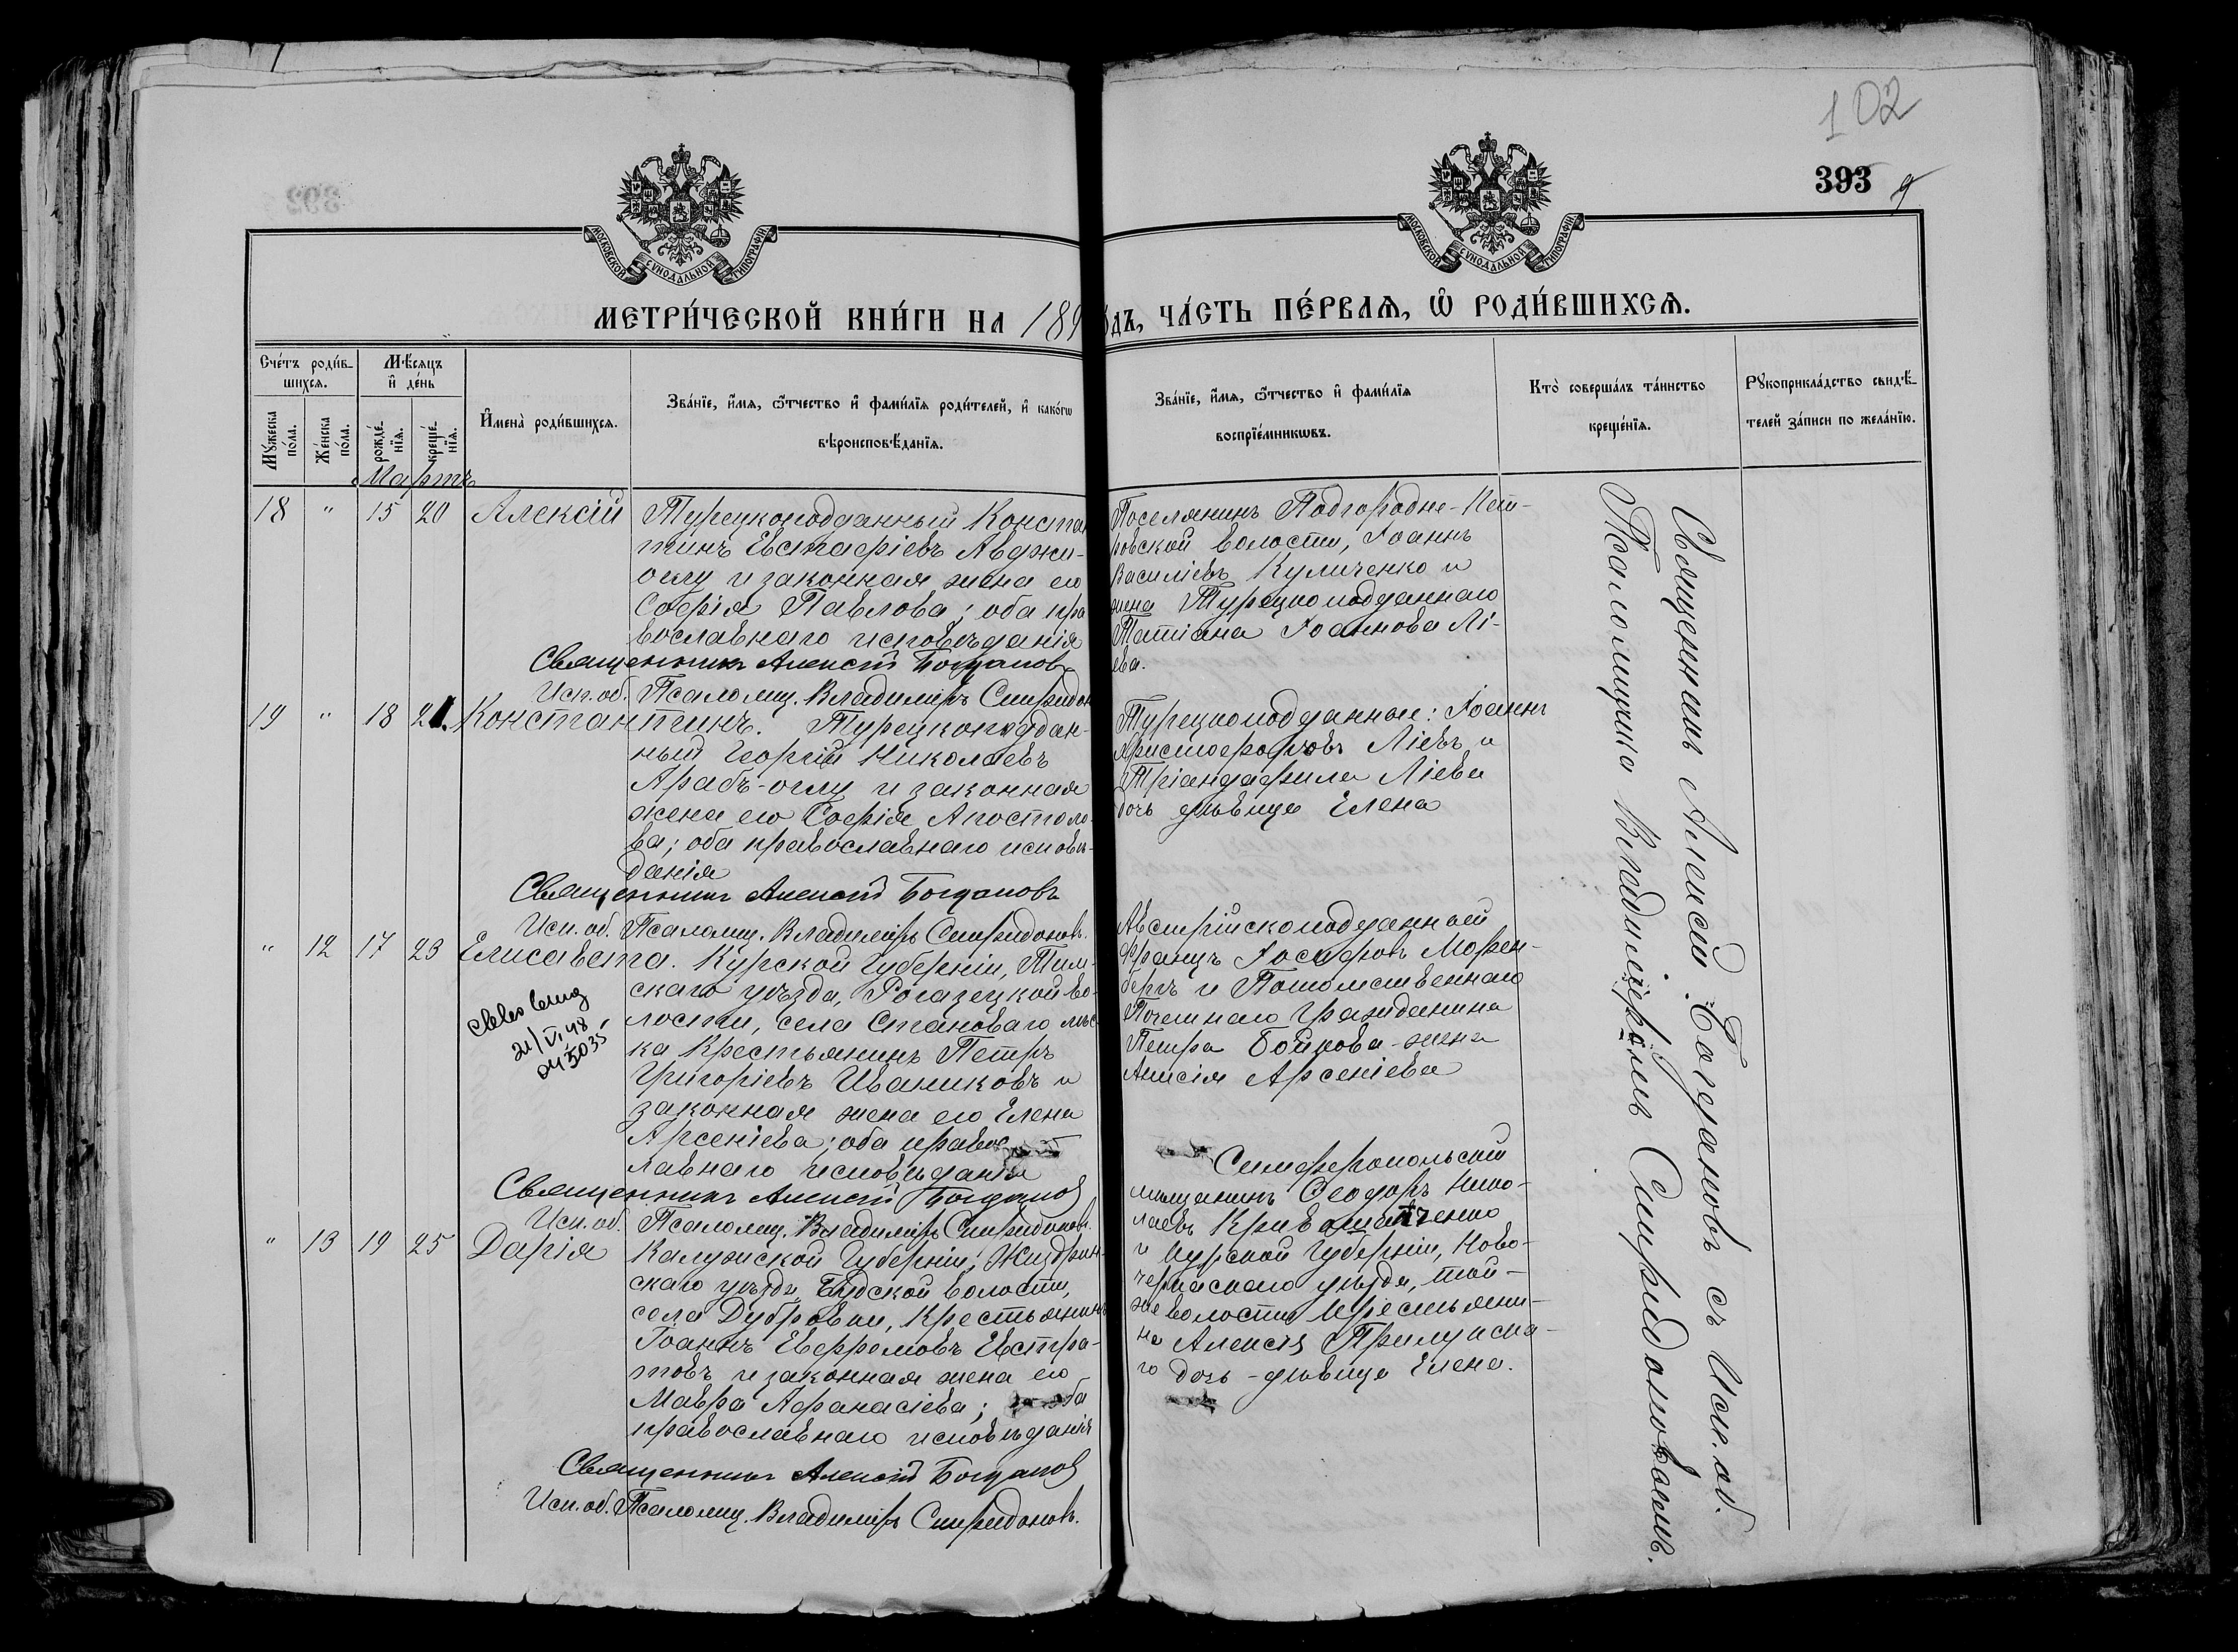 102
393
МОСКОВСКОЙ СѴНОДАЛЬНОЙ ТИПОГРАФІИ
МОСКОВСКОЙ СѴНОДАЛЬНОЙ ТИПОГРАФІИ
МЕТРИ́ЧЕСКОЙ КНИ́ГИ НА 189
ДЪ, ЧА́СТЬ ПЕ́РВАѦ, Ѡ РОДИ́ВШИХСѦ.
Сче́тъ роди́в-
шихсѧ.
Мѣ́сѧцъ
и҆ де́нь
Мꙋ́жеска
по́ла.
Же́нска
по́ла.
рожде́-
нїѧ.
креще́-
нїѧ.
И҆мена̀ роди́вшихсѧ.
Зва́нїе, и҆́мѧ, ѻ҆́тчество и҆ фами́лїѧ роди́телей, и҆ како́гѡ
вѣроисповѣ́данїѧ.
Зва́нїе, и҆́мѧ, ѻ҆́тчество и҆ фами́лїѧ
воспрїе́мникѡвъ.
Кто̀ соверша́лъ та́инство
креще́нїѧ.
Рꙋкоприкла́дство свидѣ́-
телей за́писи по жела́нїю.
Мартъ
18 " 15 20 Алексій
Турецкоподданный Конста
тинъ Евстафіевъ Авджи-
оглу и законная жена его
Софія Павлова; оба пра
вославнаго исповѣданія
Священникъ Алексій Богдановъ
Исп. об. Псаломщ. Владиміръ Спиридон
Поселянинъ Подгородне-Пет-
ровской волости, Іоаннъ
Василіевъ Куличенко и
жена Турецкоподданнаго
Татіана Іоаннова Лі-
ева.
19 " 18 21. Константинъ.
Турецкоподдан-
ный Георгій Николаевъ
Арабъ-оглу и законная
жена его Софія Апостоло
ва; оба православнаго исповѣ-
данія
Священникъ Алексій Богдановъ
Исп. об. Псаломщ. Владиміръ Спиридоновъ.
Турецкоподданные: Іоаннъ
Христофоровъ Ліевъ и
Тріандафила Ліева
дочь дѣвица Елена
" 12 17 23 Елисавета.
21/VI 48
Курской Губерніи, Тим-
скаго уѣзда, Рогозецкой во-
лости, села Становаго
ка Крестьянинъ Петръ
Григоріевъ Иваниковъ и
законная жена его Елена
Арсеніева; оба правос
лавнаго исповѣданія
Священникъ Алексій Богданов
Исп. об. Псаломщ. Владиміръ Спиридоновъ.
Австрійскоподданный
Францъ Іосифовъ Морен-
бергъ и Потомственнаго
Почетнаго Гражданина
Петра Бойкова жена
Анисія Арсеніева
" 13 19 25 Дарія
Калужской Губерніи, Жиздрин-
скаго уѣзда, Будской волости,
села Дубровки, Крестьянинъ
Іоаннъ Ефремовъ Евстра-
товъ и законная жена его
Мавра Афанасіева; оба
православнаго исповѣданія
Священникъ Алексій Богданов
Исп. об. Псаломщ. Владиміръ Спиридоновъ.
Симферопольскій
мѣщанинъ Ѳеодоръ Нико-
лаевъ Кривошапченко
и Курской Губерніи, Ново-
уѣзда, той-
же волости Крестьяни-
на Алексія Прилуцка-
го дочь - дѣвица Елена.
Священникъ Алексій Богдановъ съ Исп. об.
Псаломщика Владиміромъ Спиридоновымъ.